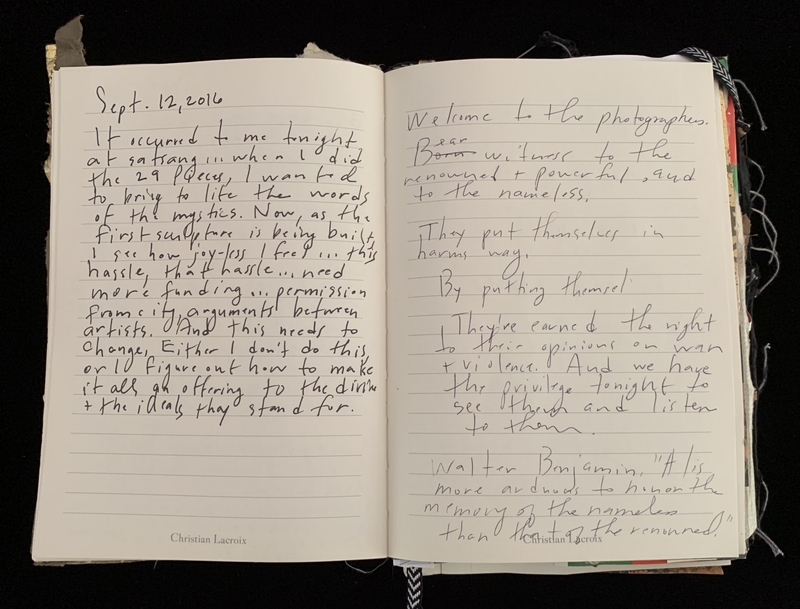 Sept. 12, 2016
It occurred to me tonight
at satsang... when I did
the 29 pieces, I wanted
to bring to life the words
of the mystics. Now, as the
first sculpture is being built,
I see how joy-less I feel... this
hassle, that hassle... need
more funding... permission
from city, arguments between
artists. And this needs to
change, Either I don't do this,
or I figure out how to make
it all an offering to the divine
+ the ideals they stand for.
Christian Lacroix
Welcome to the photographers.
Bear
Born witness to the
renowned + powerful, and
to the nameless.
They put themselves in
harms way.
By putting themsel
They've earned the right
to their opinions on war
+ violence. And we have
the privilege tonight to
see them and listen
to them.
Walter Benjamin. "It is
more arduous to honor the
memory of the nameless
than that of the renowned."
Christian Lacroix